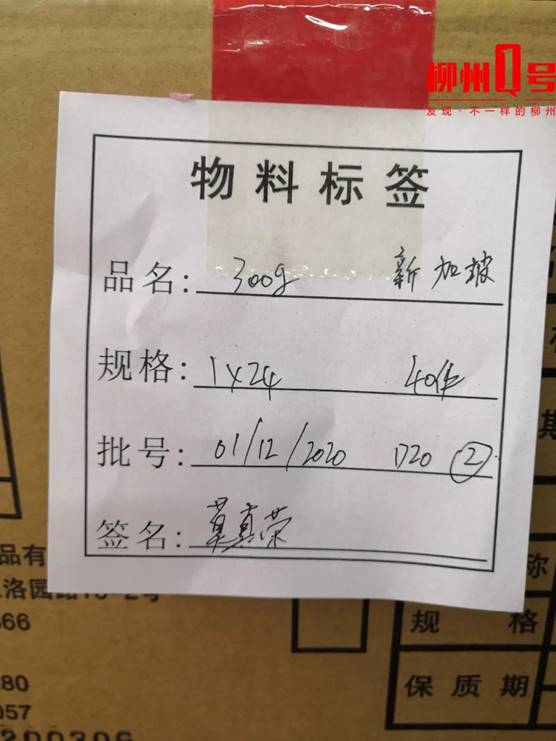 柳州1号
发现·不一样的柳州
物料标签
品名: 300g 新加坡
规格: 1×24 40件
批号: 01/12/2020 D20 ②
签名: 莫真荣
品有
洛园路
666
280
057
200306
期
称
规 格
保 质 期